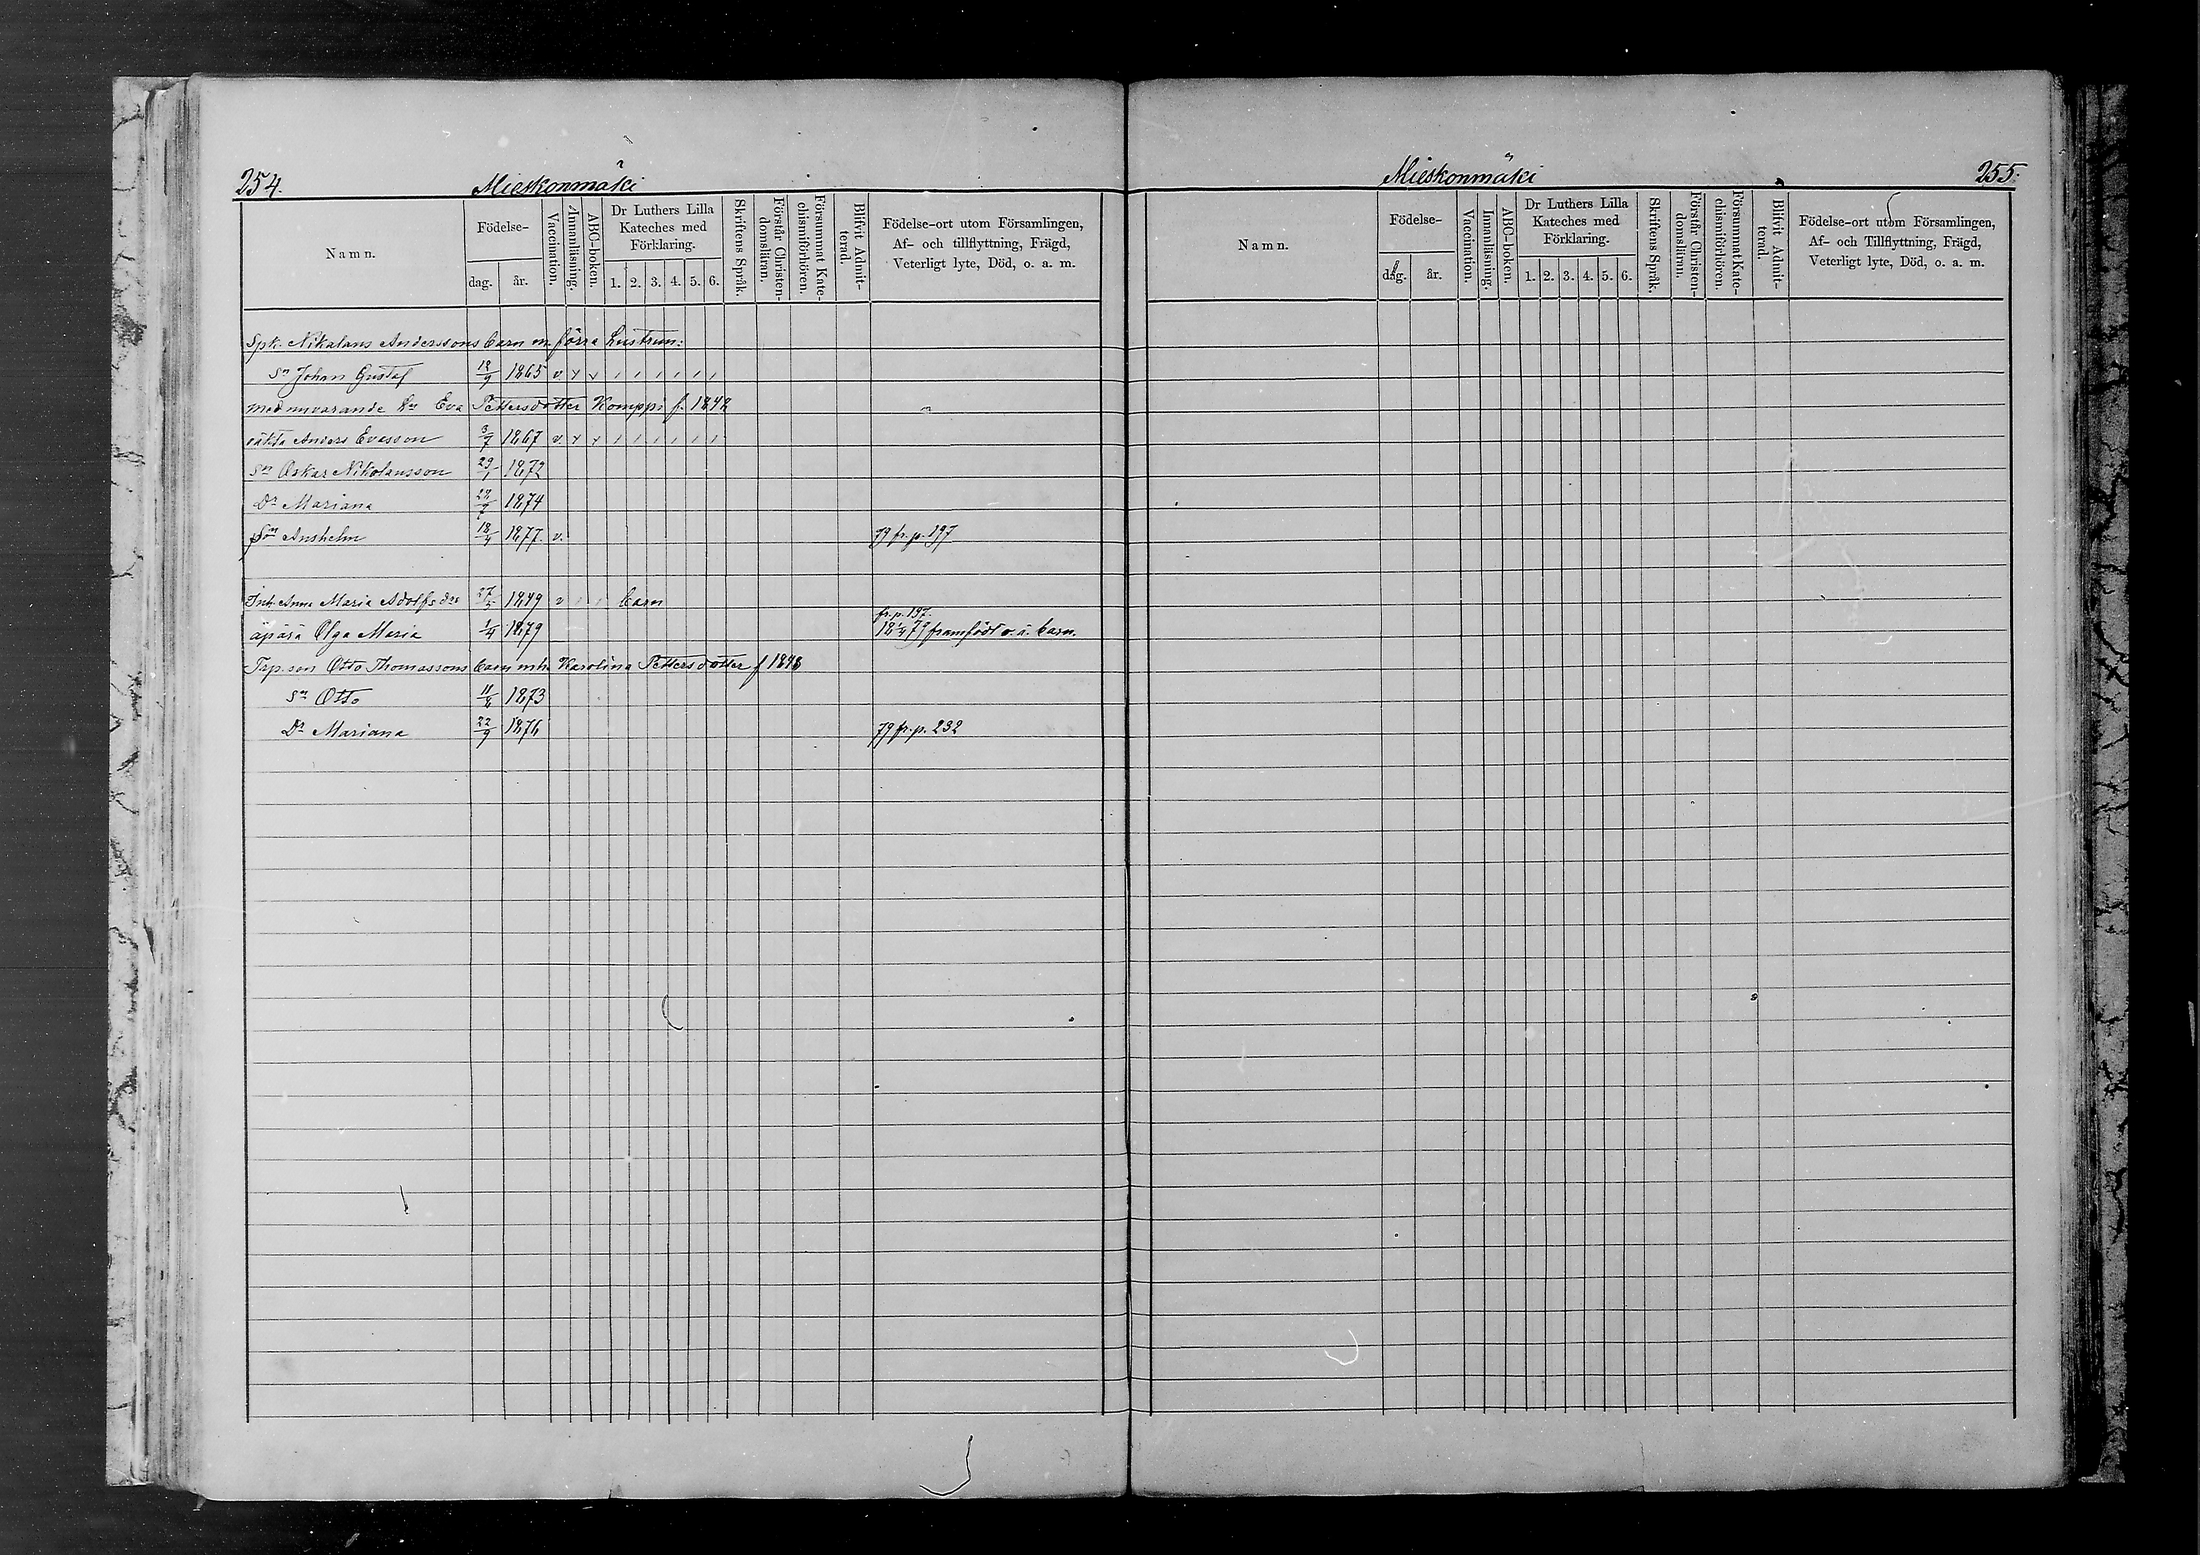 254. Mieskonmäki
Namn. Födelse- dag. år. Vaccination. Innanläsning. ABC-boken. Dr Luthers Lilla Kateches med Förklaring. 1. 2. 3. 4. 5. 6. Skriftens Språk. Förstår Christen-domsläran. Försummat Kate-chismiförhören. Blifvit Admit-terad. Födelse-ort utom Församlingen, Af- och tillflyttning, Frägd, Veterligt lyte, Död, o. a. m.
Spk. Nikolaus Anderssons barn m. förra hustrun:
Sn Johan Gustaf 12/9 1865 v.
med nuvarande hu Eva Pettersdotter Komppi f. 1842
oäkta Anders Evasson 3/7 1867 v.
Sn Oskar Nikolausson 29/1 1872
Dr Mariana 22/7 1874
Son Anshelm 18/4 1877. v. 79 fr. p. 197
Inh. Anna Maria Adolfsdr 27/5 1849 v barn
äpärä Olga Maria 1/4 1879 fr. p. 197. 18 1/4 79 framfödt o. ä. barn.
Torp. son Otto Thomassons barn m h. Karolina Pettersdotter f 1848
Sn Otto 11/8 1873
Dr Mariana 22/9 1876 79 fr. p. 232
Mieskonmäki 255.
Namn. Födelse- dag. år. Vaccination. Innanläsning. ABC-boken. Dr Luthers Lilla Kateches med Förklaring. 1. 2. 3. 4. 5. 6. Skriftens Språk. Förstår Christen-domsläran. Försummat Kate-chismiförhören. Blifvit Admit-terad. Födelse-ort utom Församlingen, Af- och Tillflyttning, Frägd, Veterligt lyte, Död, o. a. m.